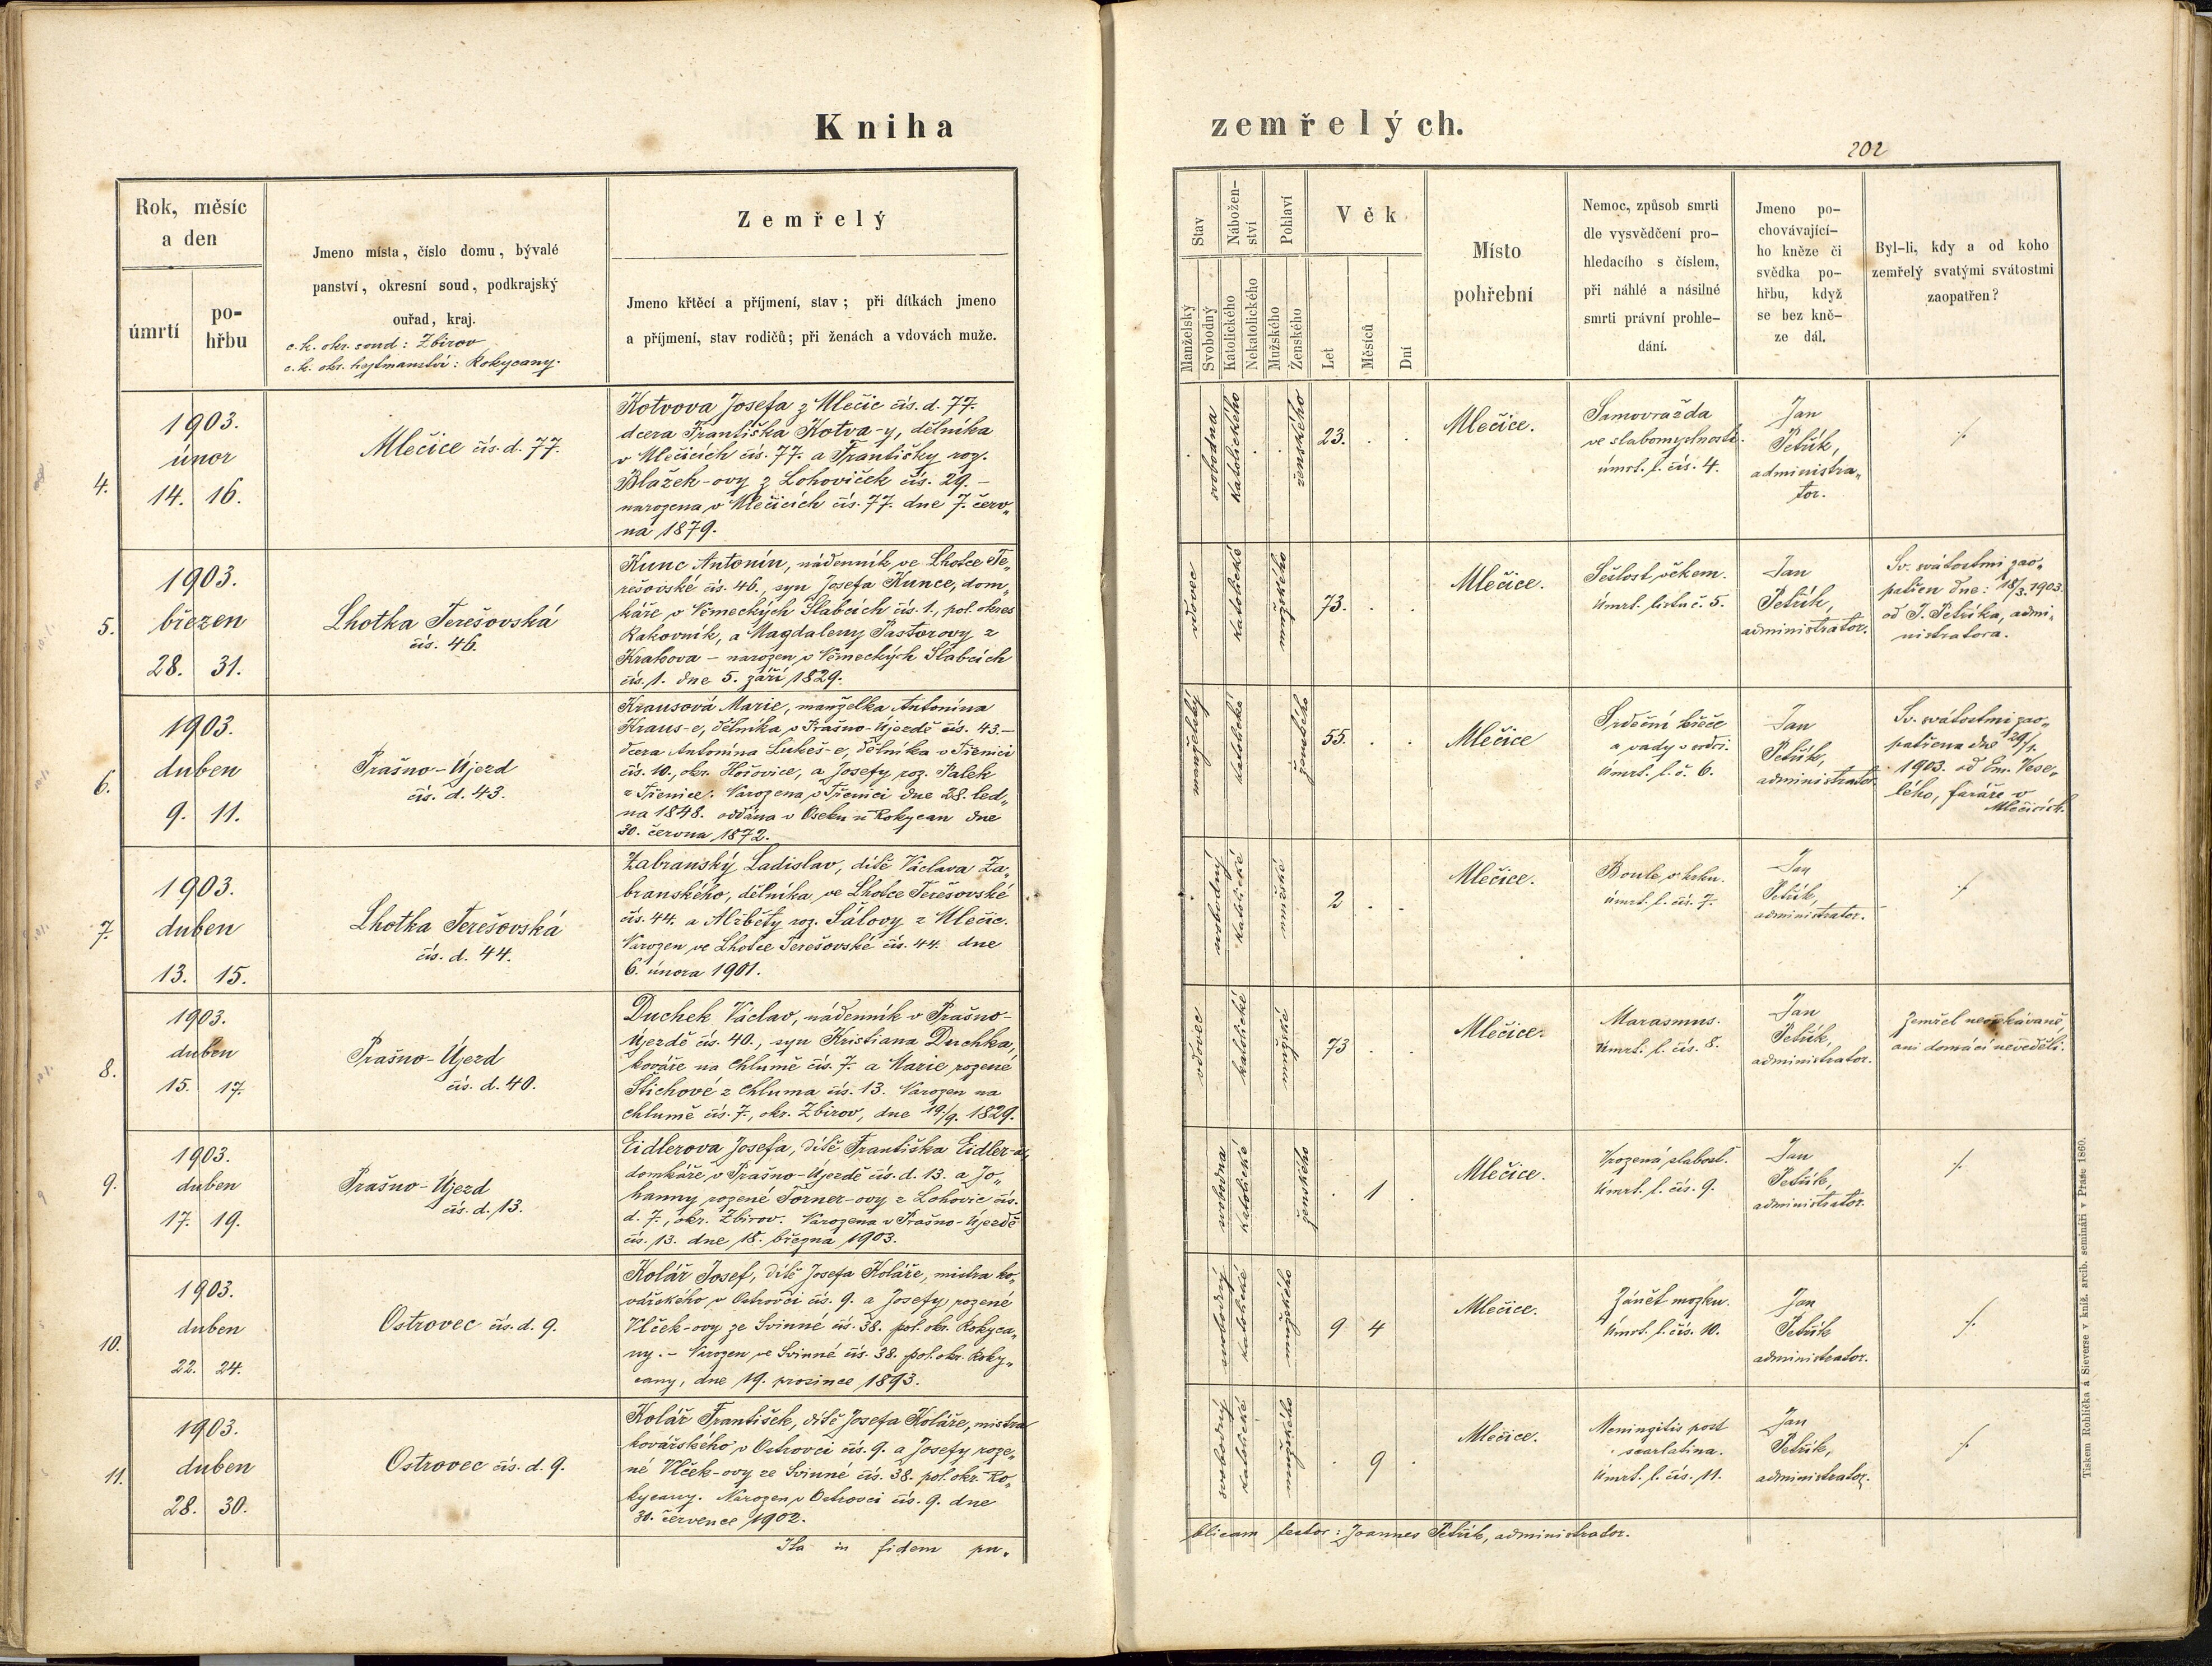 Kniha
zemřelých.
202
Rok, měsíc
a den
úmrtí
po-
hřbu
Jmeno místa, číslo domu, bývalé
panství, okresní soud, podkrajský
ouřad, kraj.
c. k. okr. soud: Zbirov
c. k. okr. hejtmanství: Rokycany.
Zemřelý
Jmeno křtěcí a příjmení, stav; při dítkách jmeno
a příjmení, stav rodičů; při ženách a vdovách muže.
Stav
Manželský
Svobodný
Nábožen-
ství
Katolického
Nekatolického
Pohlaví
Mužského
Ženského
Věk
Let
Měsíců
Dní
Místo
pohřební
Nemoc, způsob smrti
dle vysvědčení pro-
hledacího s číslem,
při náhlé a násilné
smrti právní prohle-
dání.
Jmeno po-
chovávající-
ho kněze či
svědka po-
hřbu, když
se bez kně-
ze dál.
Byl-li, kdy a od koho
zemřelý svatými svátostmi
zaopatřen?
4.
1903.
únor
14. 16.
Mlečice čís. d. 77.
Kotvova Josefa z Mlečic čís. d. 77.
dcera Františka Kotva-y, dělníka
v Mlečicích čís. 77. a Františky roz.
Blažek-ovy z Lohoviček čís. 29. –
narozena v Mlečicích čís. 77. dne 7. červ„
na 1879.
svobodna
Katolického
ženského
23. . .
Mlečice.
Samovražda
ve slabomyslnosti.
úmrt. l. čís. 4.
Jan
Petřík,
administra„
tor.
./.
5.
1903.
březen
28. 31.
Lhotka Terešovská
čís. 46.
Kunc Antonín, nádenník ve Lhotce Te„
rešovské čís. 46., syn Josefa Kunce, dom„
káře v Německých Slabcích čís. 1., pol. okres
Rakovník, a Magdaleny Pastorovy z
Krakova – narozen v Německých Slabcích
čís. 1. dne 5. září 1829.
vdovec
katolické
mužského
73. . .
Mlečice.
Sešlost věkem.
Úmrt. listu č. 5.
Jan
Petřík,
administrator.
Sv. svátostmi zao„
patřen dne: 18/3. 1903.
od J. Petříka, admi„
nistratora.
6.
1903.
duben
9. 11.
Prašno-Újezd
čís. d. 43.
Krausová Marie, manželka Antonína
Kraus-e, dělníka v Prašno-Újezdě čís. 43. –
dcera Antonína Lukeš-e, dělníka v Třenici
čís. 10., okr. Hořovice, a Josefy roz. Palek
z Třenice. Narozena v Třenici dne 28. led„
na 1848. oddána v Oseku u Rokycan dne
30. června 1872.
manželský
katolické
ženského
55. . .
Mlečice
Srdeční křeče
a vady v srdci.
Úmrt. l. č. 6.
Jan
Petřík,
administrator
Sv. svátostmi zao„
patřena dne 29/1.
1903. od Em. Vese„
lého, faráře v
Mlečicích.
7.
1903.
duben
13. 15.
Lhotka Terešovská
čís. d. 44.
Zabranský Ladislav, dítě Václava Za„
branského, dělníka ve Lhotce Terešovské
čís. 44. a Alžběty roz. Šálovy z Mlečic.
Narozen ve Lhotce Terešovské čís. 44. dne
6. února 1901.
svobodný
katolické
mužské
2 . .
Mlečice.
Boule v krku.
úmrt. l. čís. 7.
Jan
Petřík,
administrator.
./.
8.
1903.
duben
15. 17.
Prašno-Újezd
čís. d. 40.
Duchek Václav, nádenník v Prašno-
Újezdě čís. 40., syn Kristiana Duchka,
kováře na Chlumě čís. 7. a Marie rozené
Štichové z Chluma čís. 13. Narozen na
Chlumě čís. 7., okr. Zbirov, dne 19./9. 1829.
vdovec
katolické
mužské
73 . .
Mlečice.
Marasmus.
Úmrt. l. čís. 8.
Jan
Petřík,
administrator.
Zemřel neočekávaně,
ani domácí nevěděli.
9.
1903.
duben
17. 19.
Prašno-Újezd
čís. d. 13.
Eidlerova Josefa, dítě Františka Eidler-a,
domkáře v Prašno-Újezdě čís. d. 13. a Jo„
hanny rozené Forner-ovy z Lohovic čís.
d. 7., okr. Zbirov. Narozena v Prašno-Újezdě
čís. 13. dne 18. března 1903.
svobodna
katolické
ženského
. 1 .
Mlečice.
Vrozená slabost.
Úmrt. l. čís. 9.
Jan
Petřík,
administrator.
./.
10.
1903.
duben
22. 24.
Ostrovec čís. d. 9.
Kolář Josef, dítě Josefa Koláře, mistra ko„
vářského v Ostrovci čís. 9. a Josefy rozené
Vlček-ovy ze Svinné čís. 38. pol. okr. Rokyca„
ny. – Narozen ve Svinné čís. 38. pol. okr. Roky„
cany, dne 19. prosince 1893.
svobodný
katolické
mužského
9 4
Mlečice.
Zánět mozku.
Úmrt. l. čís. 10.
Jan
Petřík
administrator.
./.
11.
1903.
duben
28. 30.
Ostrovec čís. d. 9.
Kolář František, dítě Josefa Koláře, mistra
kovářského v Ostrovci čís. 9. a Josefy roze„
né Vlček-ovy ze Svinné čís. 38. pol. okr. Ro„
kycany. Narozen v Ostrovci čís. 9. dne
30. července 1902.
svobodný
katolické
mužského
. 9 .
Mlečice.
Meningitis post
scarlatina.
Úmrt. l. čís. 11.
Jan
Petřík,
administrator.
./.
Ita in fidem pu„
blicam testor: Joannes Petřík, administrator.
Tiskem Rohlíčka a Sieverse v kníž. arcib. semináři v Praze 1860.